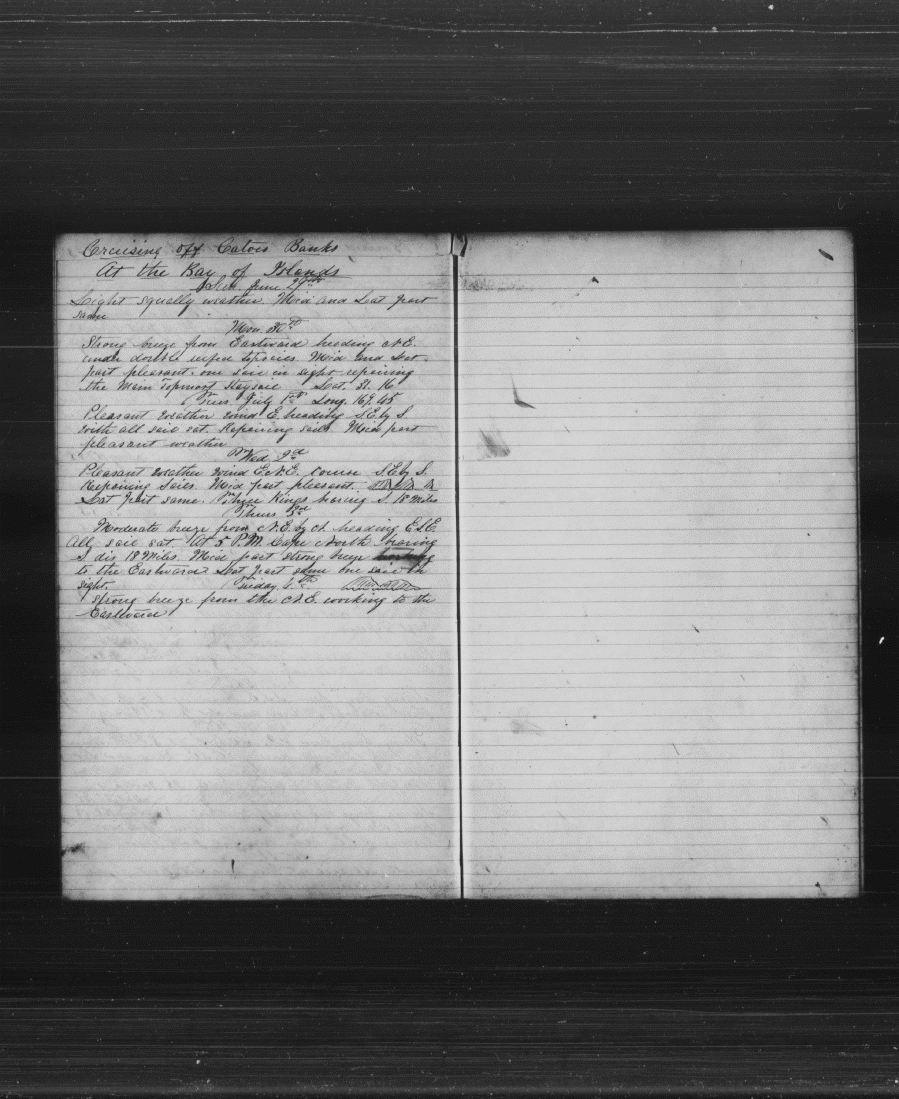 Cruising off Catos Banks
At the Bay of Islands
Sun June 29th
Light squally weather Mid and Lat part
same
Mon 30th
Strong breeze from Eastward heading N.E.
under double reefed topsails Mid and Lat
part pleasant one sail in sight repairing
the Main Topmost Staysail Lat. 31.16
Tues July 1st Long. 169.45
Pleasant weather wind E. heading S.E. by S.
with all sail set. Repairing sails. Mid part
pleasant weather
Wed 2d
Pleasant weather wind E.N.E. course S.E. by S.
Repairing Sails. Mid part pleasant.
Lat part same. Three Kings bearing S. 18 Miles
Thurs 3rd
Moderate breeze from N.E. by N. heading E.S.E.
All sail set At 5 P.M. Cape North bearing
S. dis 18 Miles. Mid part strong breeze working
to the Eastward Lat part same one sail in
sight. Friday 4th
Strong breeze from the N.E. working to the
Eastward